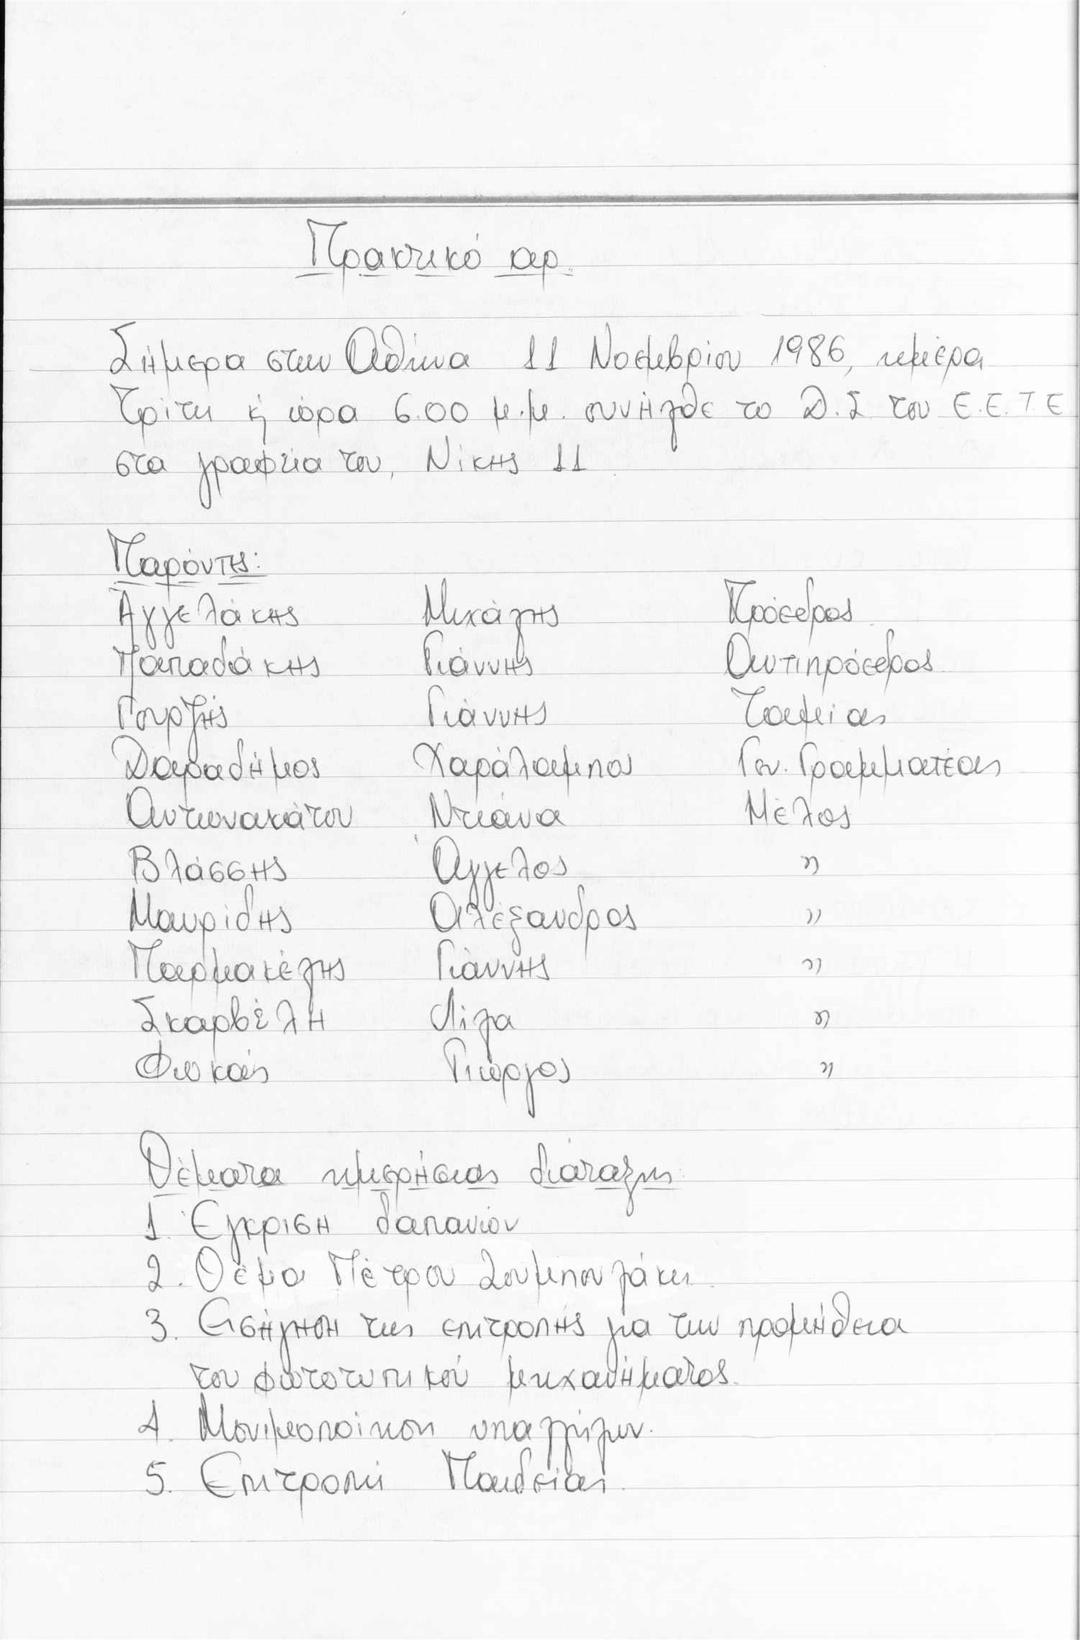 Πρακτικό αρ.
Σήμερα στην Αθήνα 11 Νοεμβρίου 1986, ημέρα
Τρίτη ή ώρα 6.00 μ.μ. συνήλθε το Δ.Σ του Ε.Ε.Τ.Ε
στα γραφεία του, Νίκης 11
Παρόντες:
Αγγελάκης Μιχάλης Πρόεδρος
Παπαδάκης Γιάννης Αντιπρόεδρος
Γουρζής Γιάννης Ταμείας
Δαραδήμος Χαράλαμπος Γεν. Γραμματέας
Αντωνακάτου Ντιάνα Μέλος
Βλάσσης Άγγελος "
Μαυρίδης Αλέξανδρος "
Παρμακέλης Γιάννης "
Σκαρβέλη Λίζα "
Φωκάς Γιώργος "
Θέματα ημερήσιας διάταξης
1. Έγκριση δαπανών
2. Θέμα Πέτρου Ζουμπουλάκη
3. Εισήγηση της επιτροπής για την προμήθεια
του φωτοτυπικού μηχανήματος.
4. Μονιμοποίηση υπαλλήλων.
5. Επιτροπή Παιδείας.